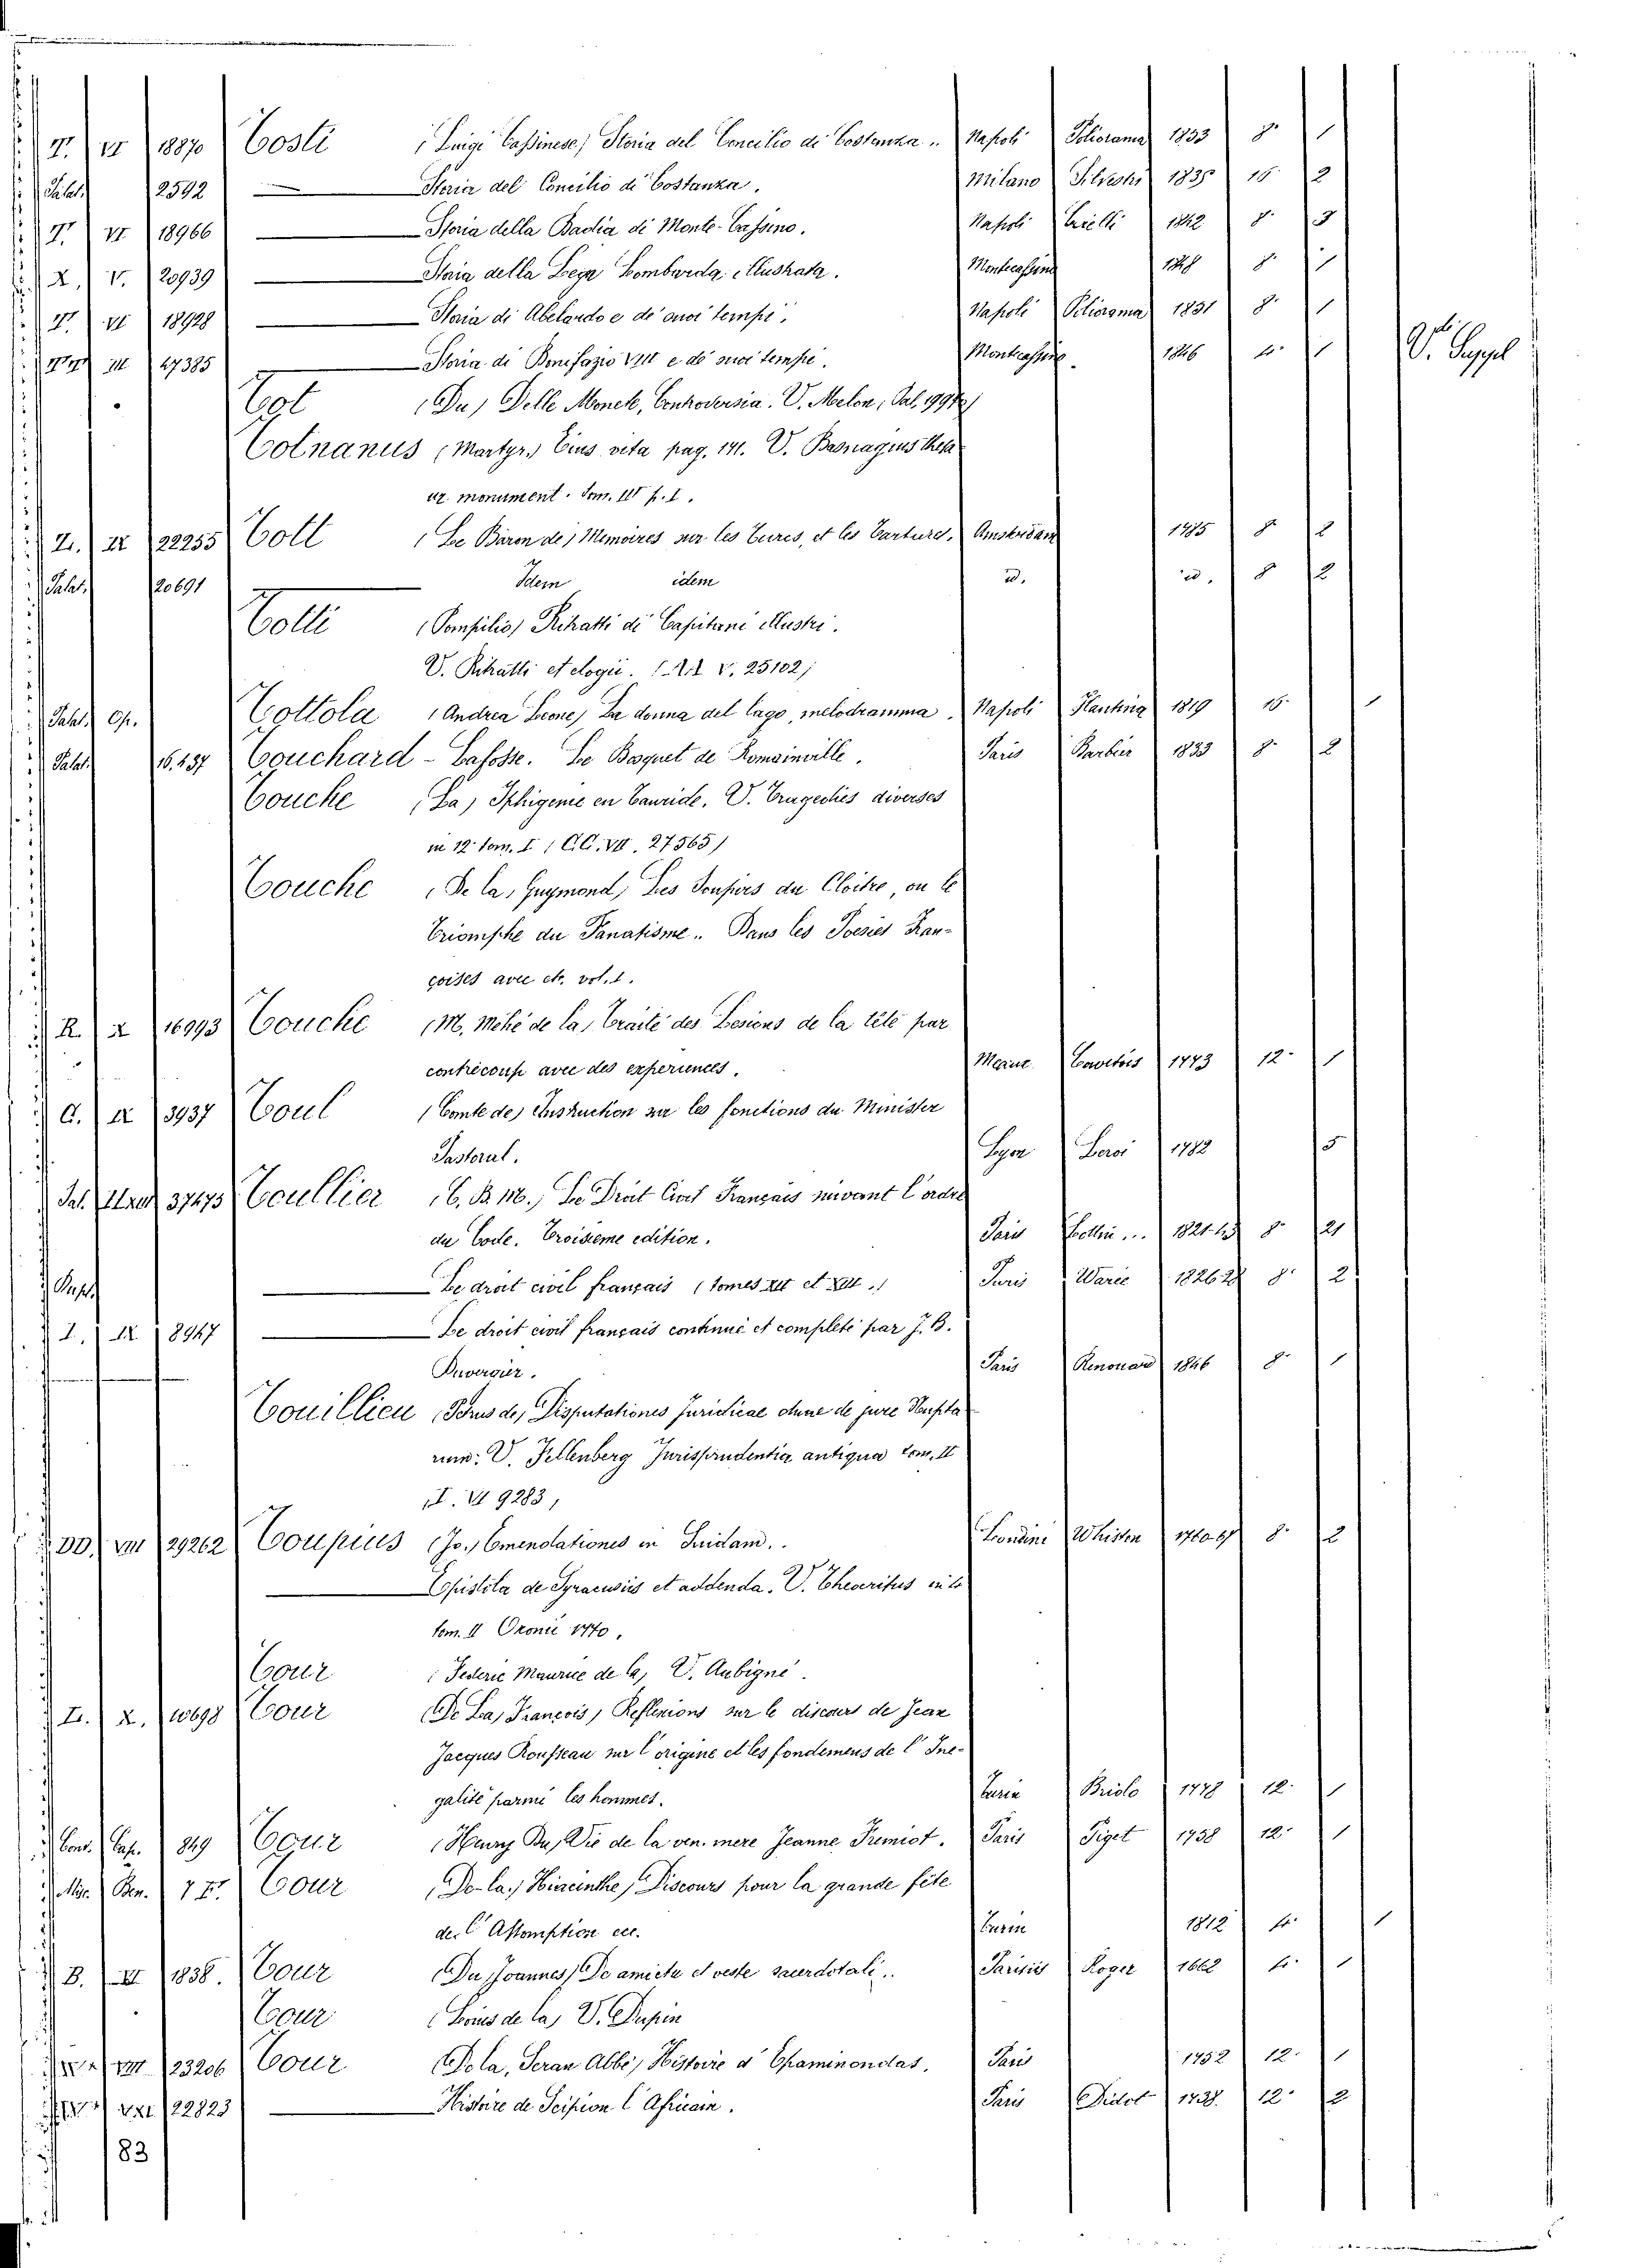 T. VI 18870 Tosti (Luigi Cassinese) Storia del Concilio di Costanza .. Napoli Poliorama 1853 8° 1
Palat. 12592 — Storia del Concilio di Costanza. Milano Silvestri 1835 16 2
T. VI 18966 — Storia della Badia di Monte-Cassino. Napoli Cirelli 1842 8° 3
X. V. 20939 — Storia della Lega Lombarda illustrata. Montecassino 1848 8° 1
T. VI 18928 — Storia di Abelardo e de' suoi tempi. Napoli Poliorama 1851 8° 1
III 47385 — Storia di Bonifazio VIII e de' suoi tempi. Montecassino 1846 4° 1 V. Suppl
Tot (Du) Delle Monete, Controversia. V. Melon, Pal.
Totnanus (Martyr.) Eius vita pag. 141. V. Basnagius thesa
ur. monument. tom. III p. I.
Z. IX 22255 Tott (Le Baron de) Memoires sur les Turcs, et les Tartares. Amsterdam 1785 8 2
Palat. 20691 Idem idem id. id. 8 2
Totti (Pompilio) Ritratti di Capitani illustri.
V. Ritratti et elogii. (AA V. 25102)
Palat. Op. Tottola (Andrea Leone) La donna del lago, melodramma. Napoli Flautina 1819 15 1
Palat. 16.437 Touchard-Lafosse. Le Bosquet de Romainville. Paris Barbier 1833 8° 2
Touche (La) Iphigenie en Tauride. V. Tragedies diverses
in 12° tom. I (CC. VII. 27565)
Touche (De la, Guymond) Les Soupirs du Cloitre, ou le
Triomphe du Fanatisme .. Dans les Poesies Fran-
çoises avec etc. vol. 1.
R. X 16993 Touche (M. Mehé de la) Traité des Lesions de la tété par
contrecoup avec des experiences. Meaux Courtois 1773 12° 1
C. IX 3937 Toul (Comte de) Instruction sur les fonctions du Minister
Pastoral. Lyon Leroi 1782 5
Pal. 37475 Toullier (C. B. M.) Le Droit Civil Français suivant l'ordre
du Code. Troisieme edition. Paris Cottin ... 8° 21
Supp. — Le droit civil français (tomes XII et XIII.) Paris Warée 8° 2
I. IX. 8947 — Le droit civil français continué et completé par J. B.
Duvergier. Paris Renouard 1846 8° 1
Touillieu (Petrus de) Disputationes Juridicae de jure Nupta
rum: V. Fellenberg Jurisprudentia antiqua tom. II
(I. VI 9283)
DD. VIII 29262 Toupius (Jo.) Emendationes in Suidam. Londini Whiston 8° 2
— Epistola de Syracusiis et addenda. V. Theocritus
tom. II Oxonii 1770.
Tour (Federic Maurice de la) V. Aubigné.
X. 10698 Tour (De La, François) Reflexions sur le discours de Jean
Jacques Rousseau sur l'origine et les fondemens de l'Ine-
galité parmi les hommes. Turin Briolo 1778 12° 1
Conv. Cap. 849 Tour (Henry Du) Vie de la ven. mere Jeanne Fremiot. Paris Piget 1738 12° 1
Misc. Ben. 7 Tour (De-la.) Hiacinthe) Discours pour la grande féte
de l'Assomption ecc. Turin 1812 4° 1
B. 1838. Tour (Du, Joannes) De amictu et veste sacerdotali.. Parisiis Roger 1662 4° 1
Tour (Louis de la) V. Dupin
VIII 23206 Tour (De la, Seran Abbé) Histoire d'Epaminondas. Paris 1752 12° 1
22823 — Histoire de Scipion l'Africain. Paris Didot 1738. 12° 2
83